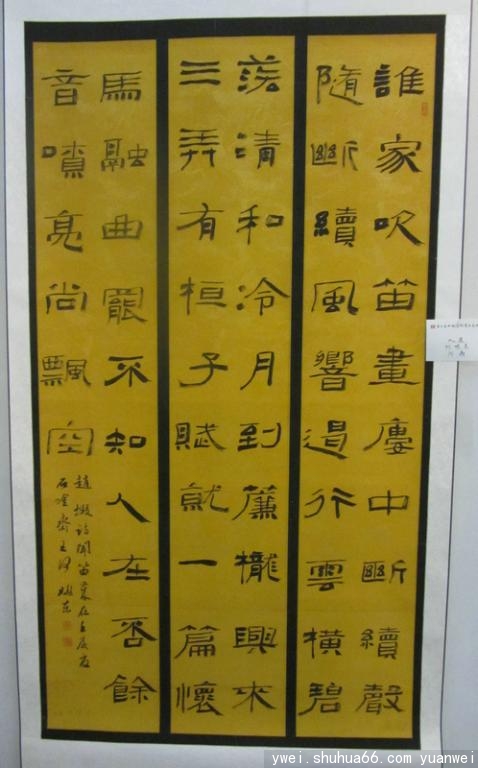 誰家吹笛畫廔中斷續聲
隨斷續風響遏行雲橫碧
落清和冷月到簾櫳興來
三弄有桓子賦就一篇懷
馬融曲罷不知人在否餘
音嘹亮尚飄空
趙嘏詩聞笛歲在壬辰夏
石齋王
ywei.shuhua66.com yuanwei